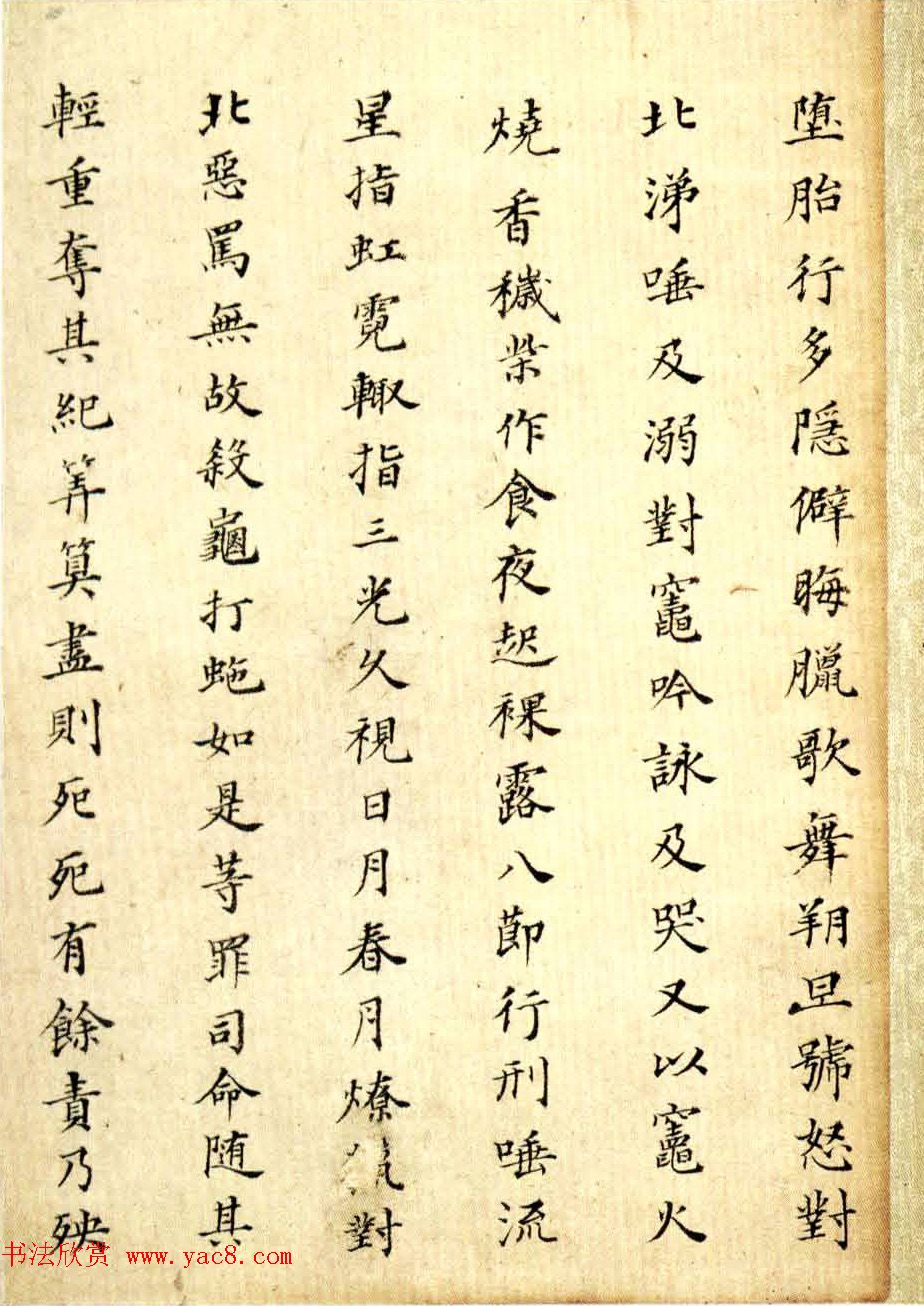 墮胎行多隱僻晦臘歌舞朔旦號怒對
北涕唾及溺對竈吟詠及哭又以竈火
燒香穢柴作食夜起裸露八節行刑唾流
星指虹霓輙指三光久視日月春月燎對
北惡罵無故殺龜打虵如是等罪司命随其
輕重奪其紀筭算盡則死死有餘責乃殃
书法欣赏 www.yac8.com